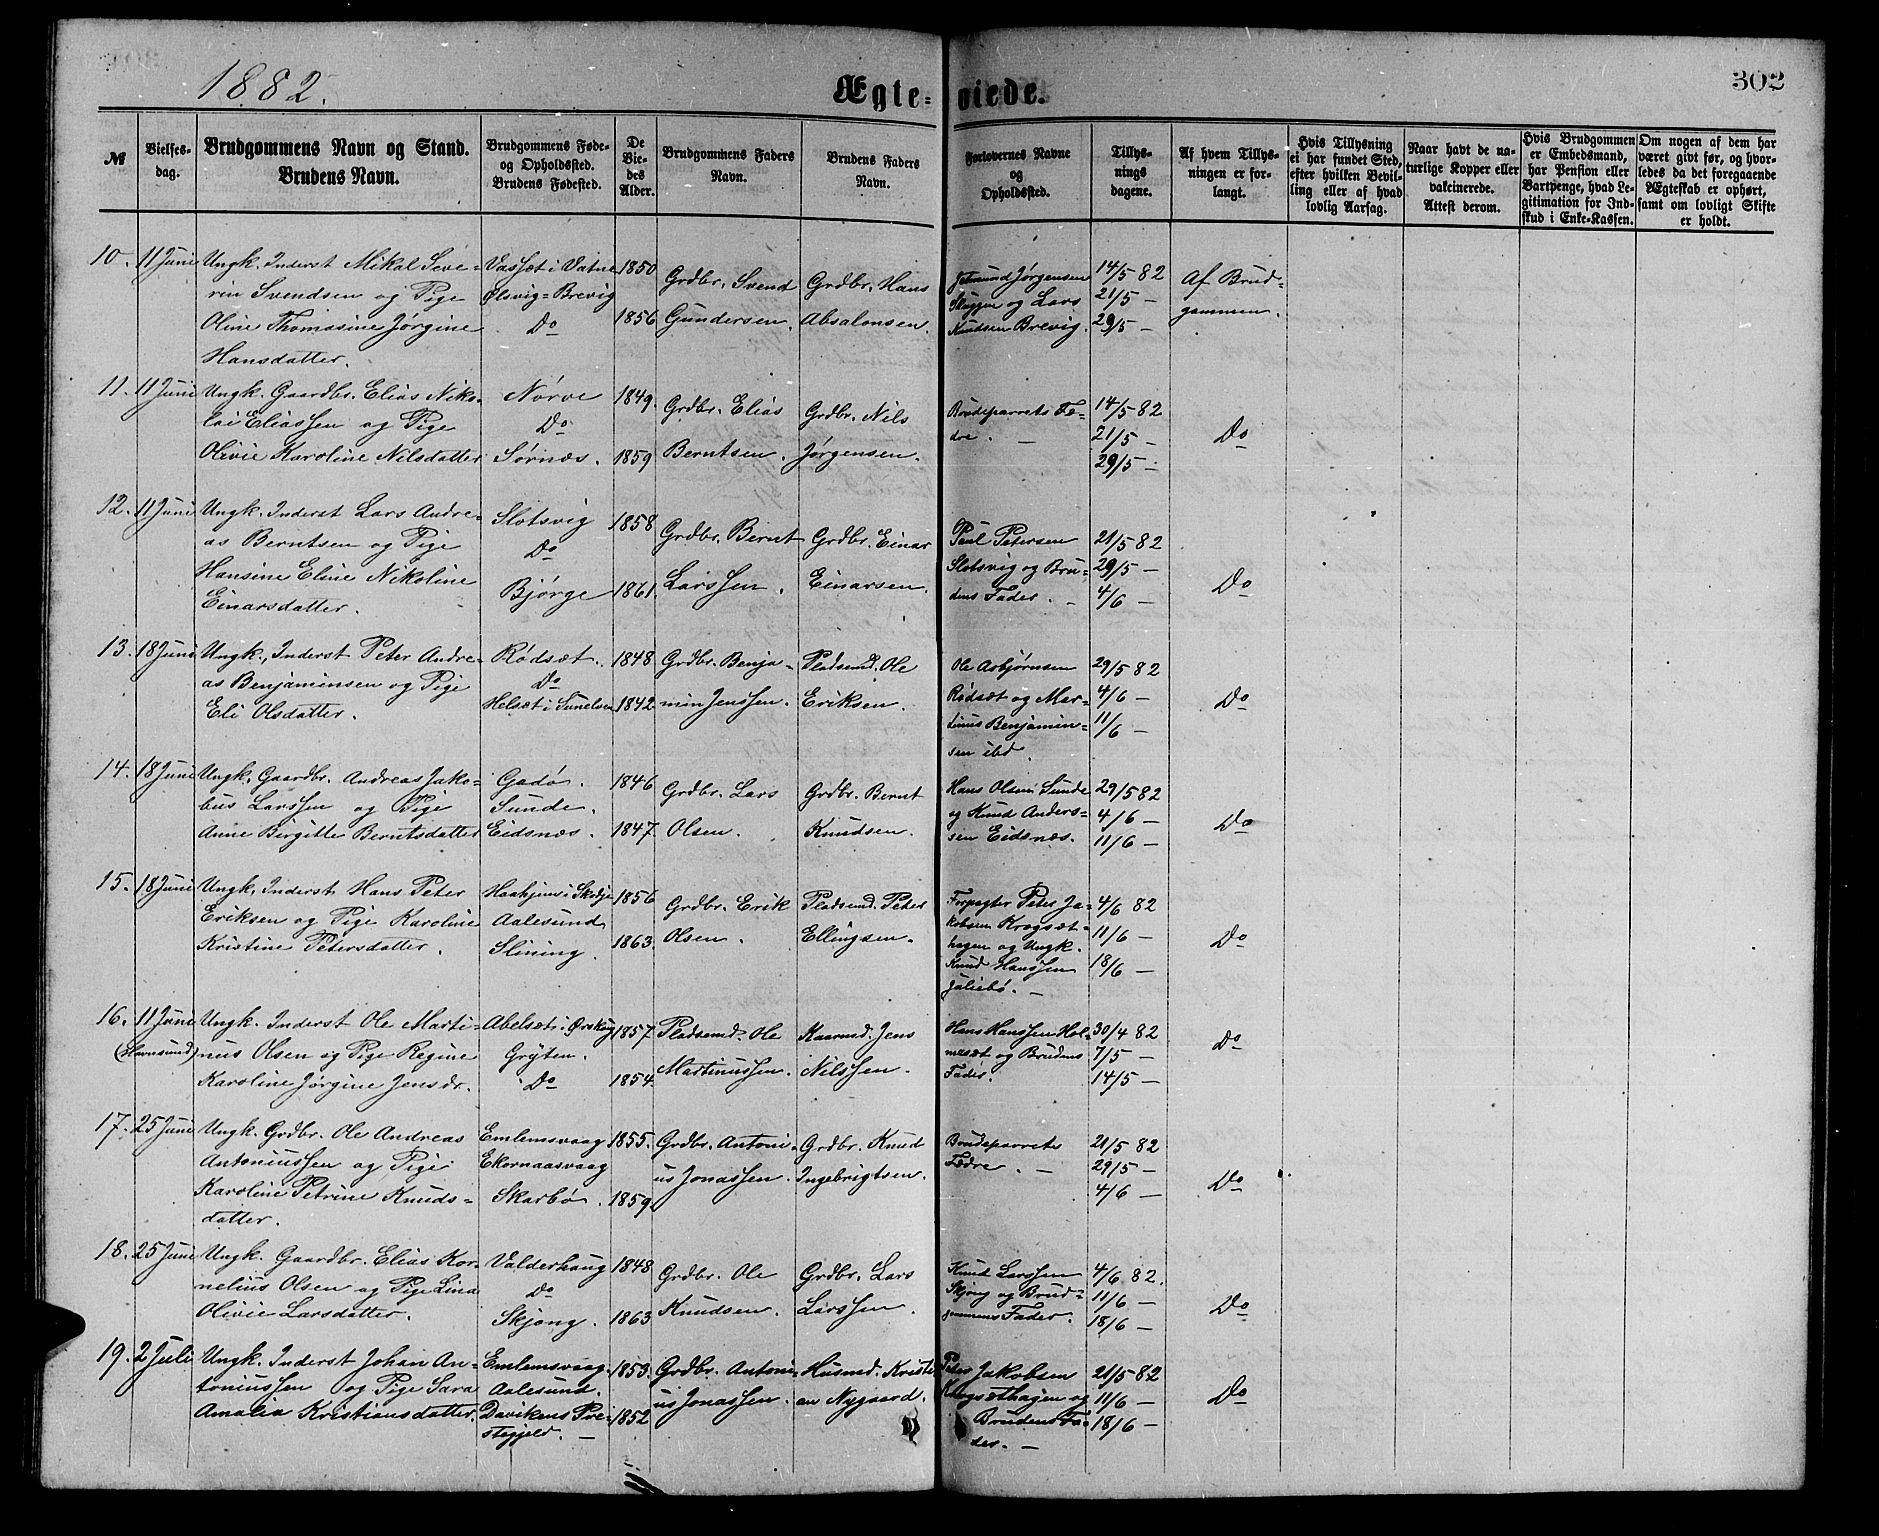 1882.
Ægte-
viede.
302
№
Vielses-
dag.
Brudgommens Navn og Stand.
Brudens Navn.
Brudgommens Føde-
og Opholdsted.
Brudens Fødested.
De
Vie-
des
Alder.
Brudgommens Faders
Navn.
Brudens Faders
Navn.
Forlovernes Navne
og
Opholdssted.
Tillys-
nings
dagene.
Af hvem Tillys-
ningen er for-
langt.
Hvis Tillysning
ei har fundet Sted,
efter hvilken Bevil-
ling eller af hvad
lovlig Aarsag.
Naar havt de na-
turlige Kopper eller
vakcinerede.
Attest derom.
Hvis Brudgommen
er Embedsmand,
har Pension eller
Vartpenge, hvad Le-
gitimation for Ind-
skud i Enke-Kassen.
Om nogen af dem har
været givt før, og hvor-
ledes da det foregaaende
Ægteskab er ophørt,
samt om lovligt Skifte
er holdt.
10.
11 Juni
Ungk. Inderst Mikal Seve-
rin Svendsen og Pige
Oline Thomasine Jørgine
Hansdatter.
Vassæt i Vatne
Ølsvig=Brevig
Do
1850
1856
Grdbr. Svend
Gundersen.
Grdbr. Hans
Absalonsen.
Jetmund Jørgensen
Skuggen og Lars
Knudsen Brevig.
14/5 82
21/5 —
29/5 —
Af Brud-
gommen.
11.
11 Juni
Ungk. Gaardbr. Elias Niko-
lai Eliassen og Pige
Olivie Karoline Nilsdatter
Nørve
Do
Sørnæs.
1849.
1859
Grdbr. Elias
Berntsen.
Grdbr. Nils
Jørgensen.
Brudeparrets Fæ-
dre. —
14/5 82
21/5 —
29/5 —
Do
12.
11 Juni
Ungk. Inderst Lars Andre-
as Berntsen og Pige
Hansine Eline Nikoline
Einarsdatter.
Slotsvig
Do
Bjørge
1858
1861.
Grdbr. Bernt
Larssen.
Grdbr. Einar
Einarsen.
Paul Petersen
Slotsvig og Bru-
dens Fader. —
21/5 82
29/5 —
4/6 —
Do
13.
18 Juni
Ungk., Inderst Peter Andre-
as Benjaminsen og Pige
Eli Olsdatter.
Rødsæt.
Do
Helsæt i Sunelven
1848
1842
Grdbr. Benja-
min Jenssen.
Pladsmd. Ole
Eriksen.
Ole Asbjørnsen
Rødsæt og Mar-
tinus Benjamin-
sen ibd.
29/5 82
4/6 —
11/6 —
Do
14.
18 Juni
Ungk. Gaardbr. Andreas Jako-
bus Larssen og Pige
Anne Birgitte Berntsdatter
Godø.
Sunde.
Eidsnæs.
1846
1847.
Grdbr. Lars
Olsen.
Grdbr. Bernt
Knudsen.
Hans Olsen Sunde
og Knud Anders-
sen Eidsnæs.
29/5 82
4/6 —
11/6 —
Do
15.
18 Juni
Ungk, Inderst Hans Peter
Eriksen og Pige Karoline
Kristine Petersdatter.
Haahjem i Skodje
Aalesund
Slining.
1856
1863.
Grdbr. Erik
Olsen.
Pladsmd. Peter
Ellingsen.
Forpagter Peter Ja-
kobsen Krogsæt-
hagen og Ungk.
Knud Hanssen
4/6 82
11/6 —
18/6 —
Do
16.
11 Juni
(Havnsund)
Ungk. Inderst Ole Marti-
nus Olsen og Pige Regine
Karoline Jørgine Jensdr.
Abelsæt i Ørskog
Gryten.
Do
1857.
1854.
Pladsmd. Ole
Martinussen.
Kaarmd. Jens
Nilssen.
Hans Hanssen Hol-
mesæt og Brudens
Fader.
30/4 82
7/5 —
14/5 —
Do
17.
25 Juni
Ungk. Grdbr. Ole Andreas
Antoniussen og Pige
Karoline Petrine Knuds-
datter.
Emlemsvaag
Ekornaasvaag
Skarbø.
1855.
1859.
Grdbr. Antoni-
us Jonassen.
Grdbr. Knud
Ingebrigtsen.
Brudeparrets
Fædre. —
21/5 82
29/5 —
4/6 —
Do
18.
25 Juni
Ungk. Gaardbr. Elias Kor-
nelius Olsen og Pige Lina
Olivie Larsdatter.
Valderhaug
Do
Skjong.
1848
1863
Grdbr. Ole
Knudsen.
Grdbr. Lars
Larssen.
Knud Larssen
Skjong og Brud-
gommens Fader.
4/6 82.
11/6 —
18/6 —
Do
19.
2 Juli
Ungk. Inderst Johan An-
toniussen og Pige Sara
Amalia Kristiansdatter.
Emlemsvaag.
Aalesund.
Davikens Pre-
stegjeld. —
1853.
1852
Grdbr. Antoni-
us Jonassen.
Husmd. Kristi-
an Nygaard.
Peter Jakobsen
Krogsæthagen og
Brudens Fa-
der. —
21/5 82
11/6 —
18/6 —
Do